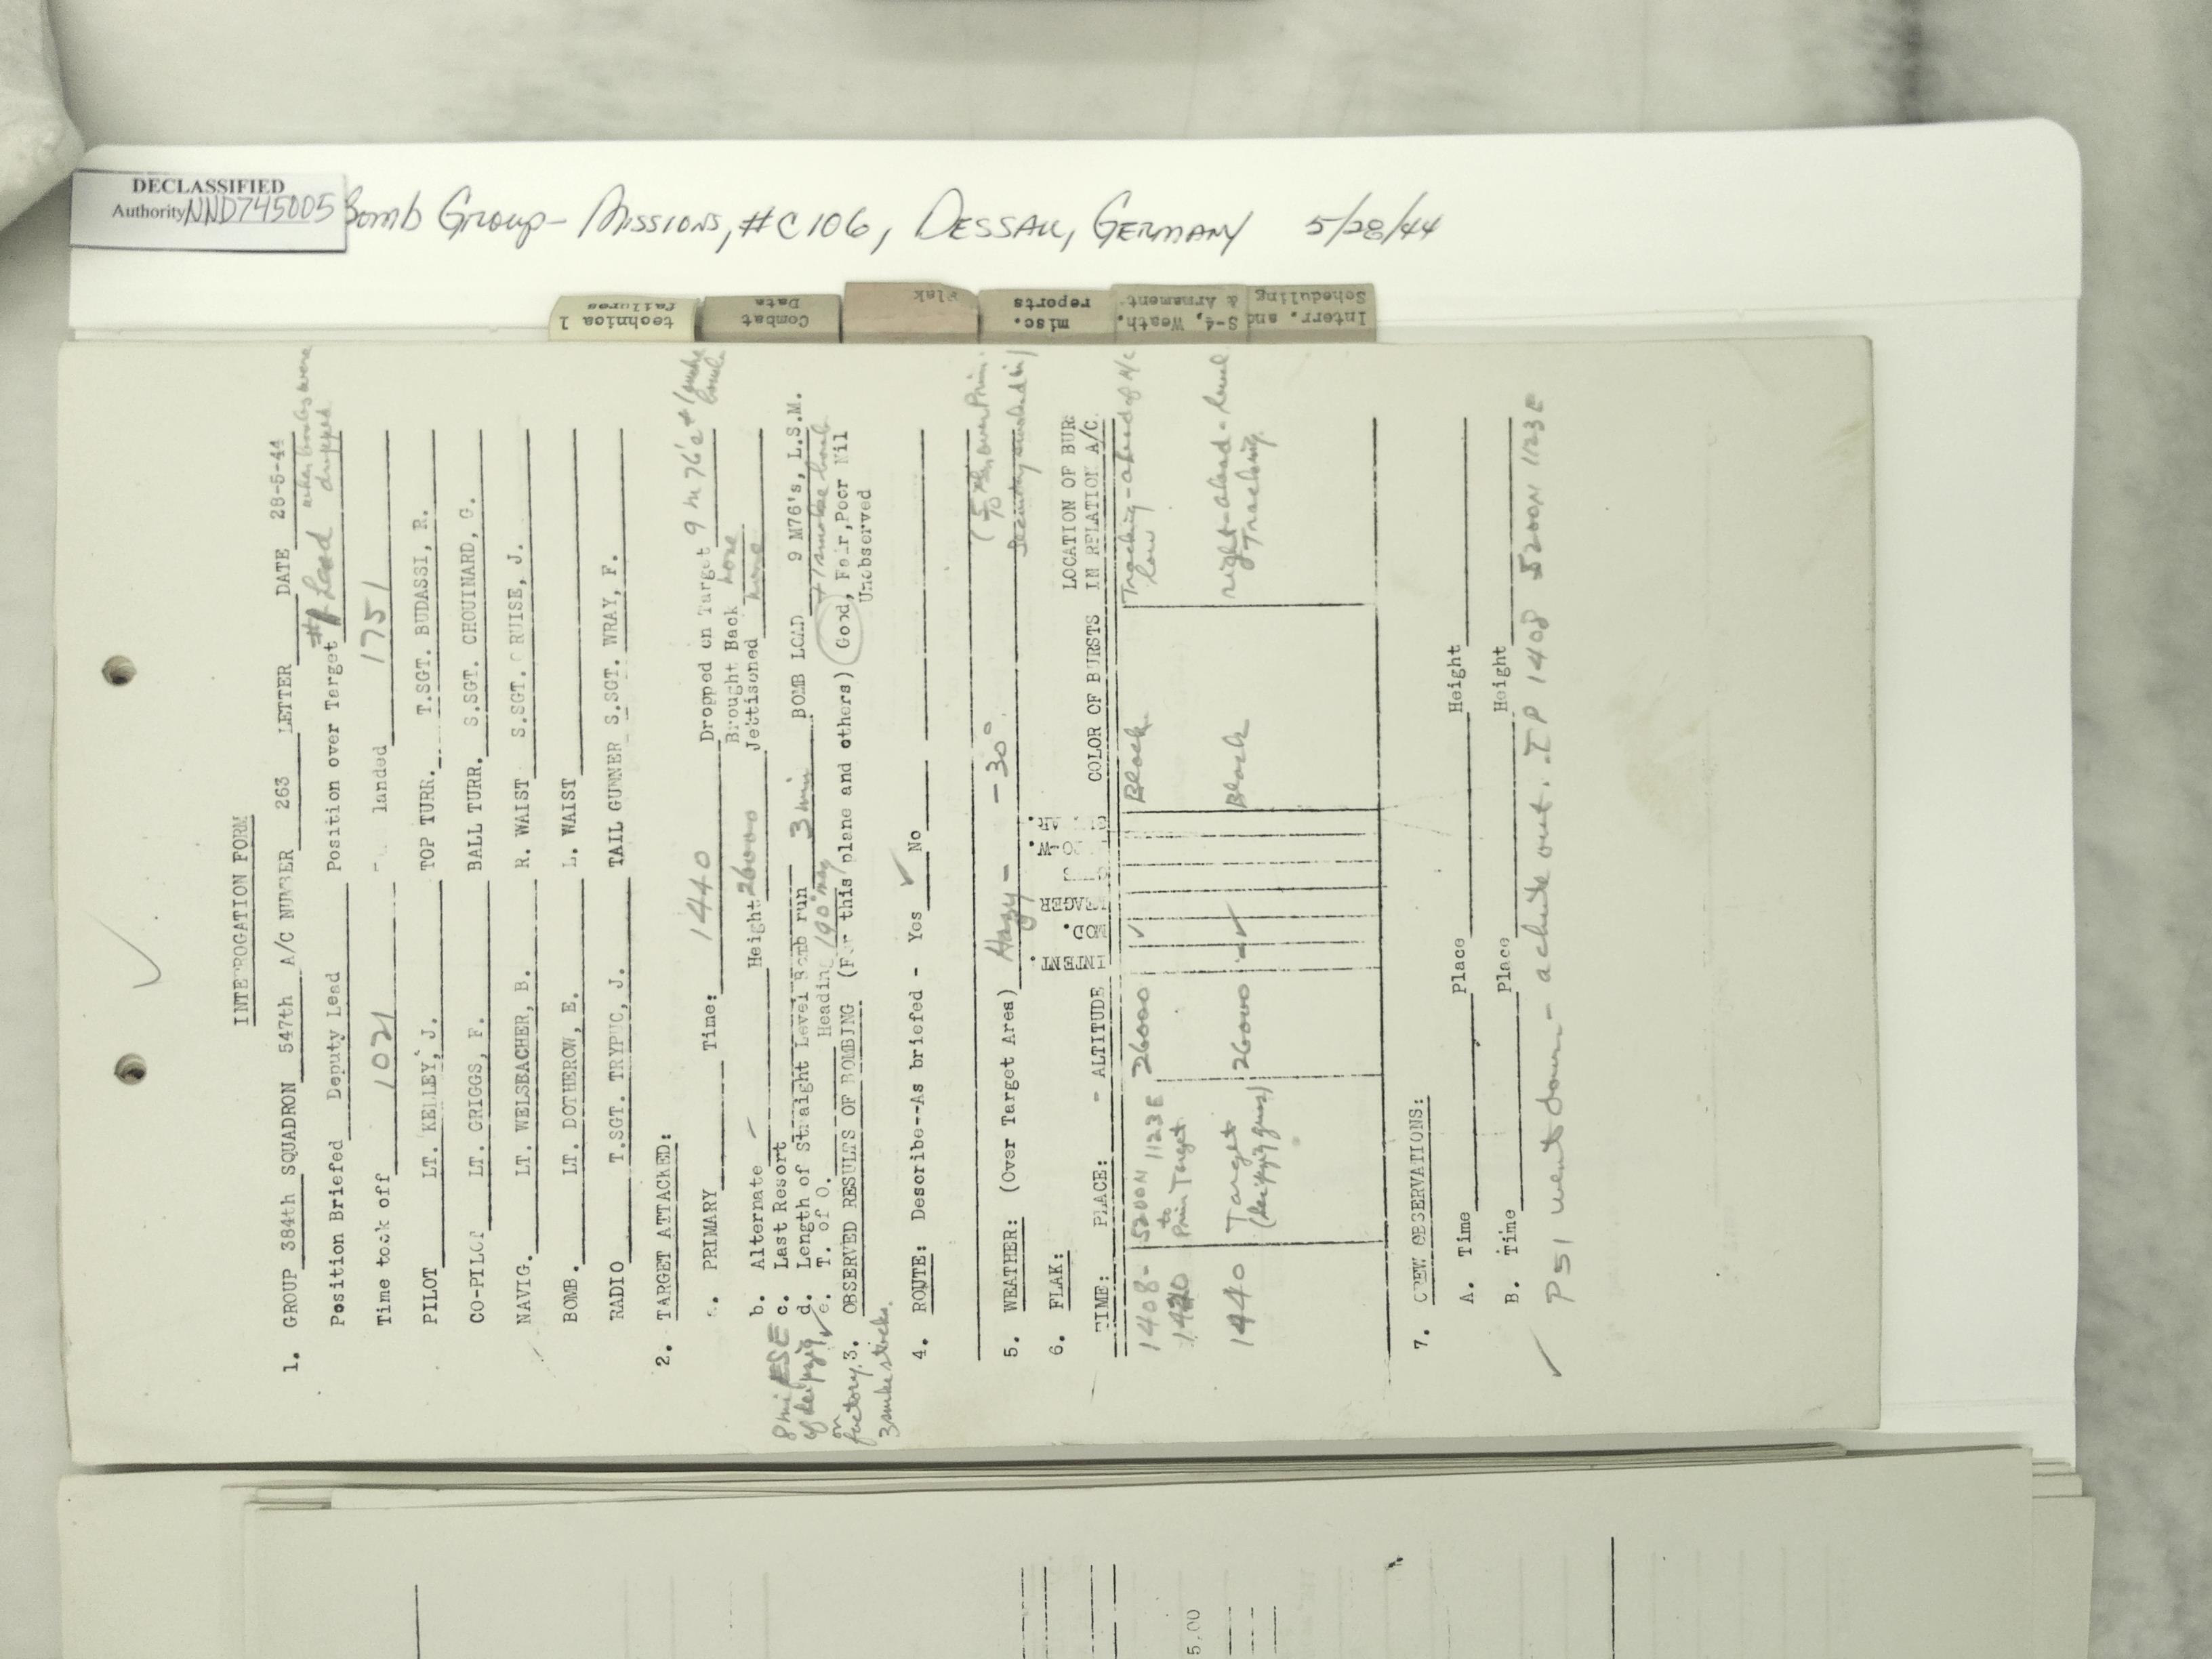 DECLASSIFIED
Authority NND745005
Bomb Group - Missions, #C106, DESSAU, GERMANY 5/28/44
technical failures
Combat Data
Flak
misc. reports
S-4, Weath. & Armament
Interr. and Scheduling
INTERROGATION FORM
1. GROUP 384th SQUADRON 547th A/C NUMBER 263 LETTER DATE 28-5-44
Position Briefed Deputy Lead Position over Target # Lead when bombs were dropped
Time took off 1021 landed 1751
PILOT LT. KELLEY, J. TOP TURR. T.SGT. BUDASSI, R.
CO-PILOT LT. GRIGGS, F. BALL TURR. S.SGT. CHOUINARD, G.
NAVIG. LT. WELSBACHER, B. R. WAIST S.SGT. CRUISE, J.
BOMB. LT. DOTHEROW, E. L. WAIST
RADIO T.SGT. TRYPUC, J. TAIL GUNNER S.SGT. WRAY, F.
2. TARGET ATTACKED:
a. PRIMARY Time: 1440 Dropped on Target 9 M76's + 1 smoke bomb
Brought Back none
b. Alternate Height 26000 Jettisoned none
c. Last Resort
8 mi ESE of Leipzig
d. Length of Straight Level Bomb run 3 min BOMB LOAD 9 M76's, L.S.M.
e. T. of O. Heading 190° mag + 1 smoke bomb
3. OBSERVED RESULTS OF BOMBING (For this plane and others) Good, Fair, Poor Nil
Unobserved
on factory. 3 smoke sticks.
4. ROUTE: Describe--As briefed - Yes ✓ No
5. WEATHER: (Over Target Area) Hazy - - 30° (5/10 over Prim.
6. FLAK:
TIME: PLACE: - ALTITUDE INTENT. MOD. MEAGER COLOR OF BURSTS LOCATION OF BUR. IN RELATION A/C
1408-1420 5200N 1123E to Prim Target 26000 ✓ Black Tracking - ahead of A/C low
1440 Target (Leipzig guns) 26000 ✓ Black right-ahead-level Tracking
7. CREW OBSERVATIONS:
A. Time Place Height
B. Time Place Height
✓ P51 went down - a chute out. IP 1408 5200N 1123E
5.00